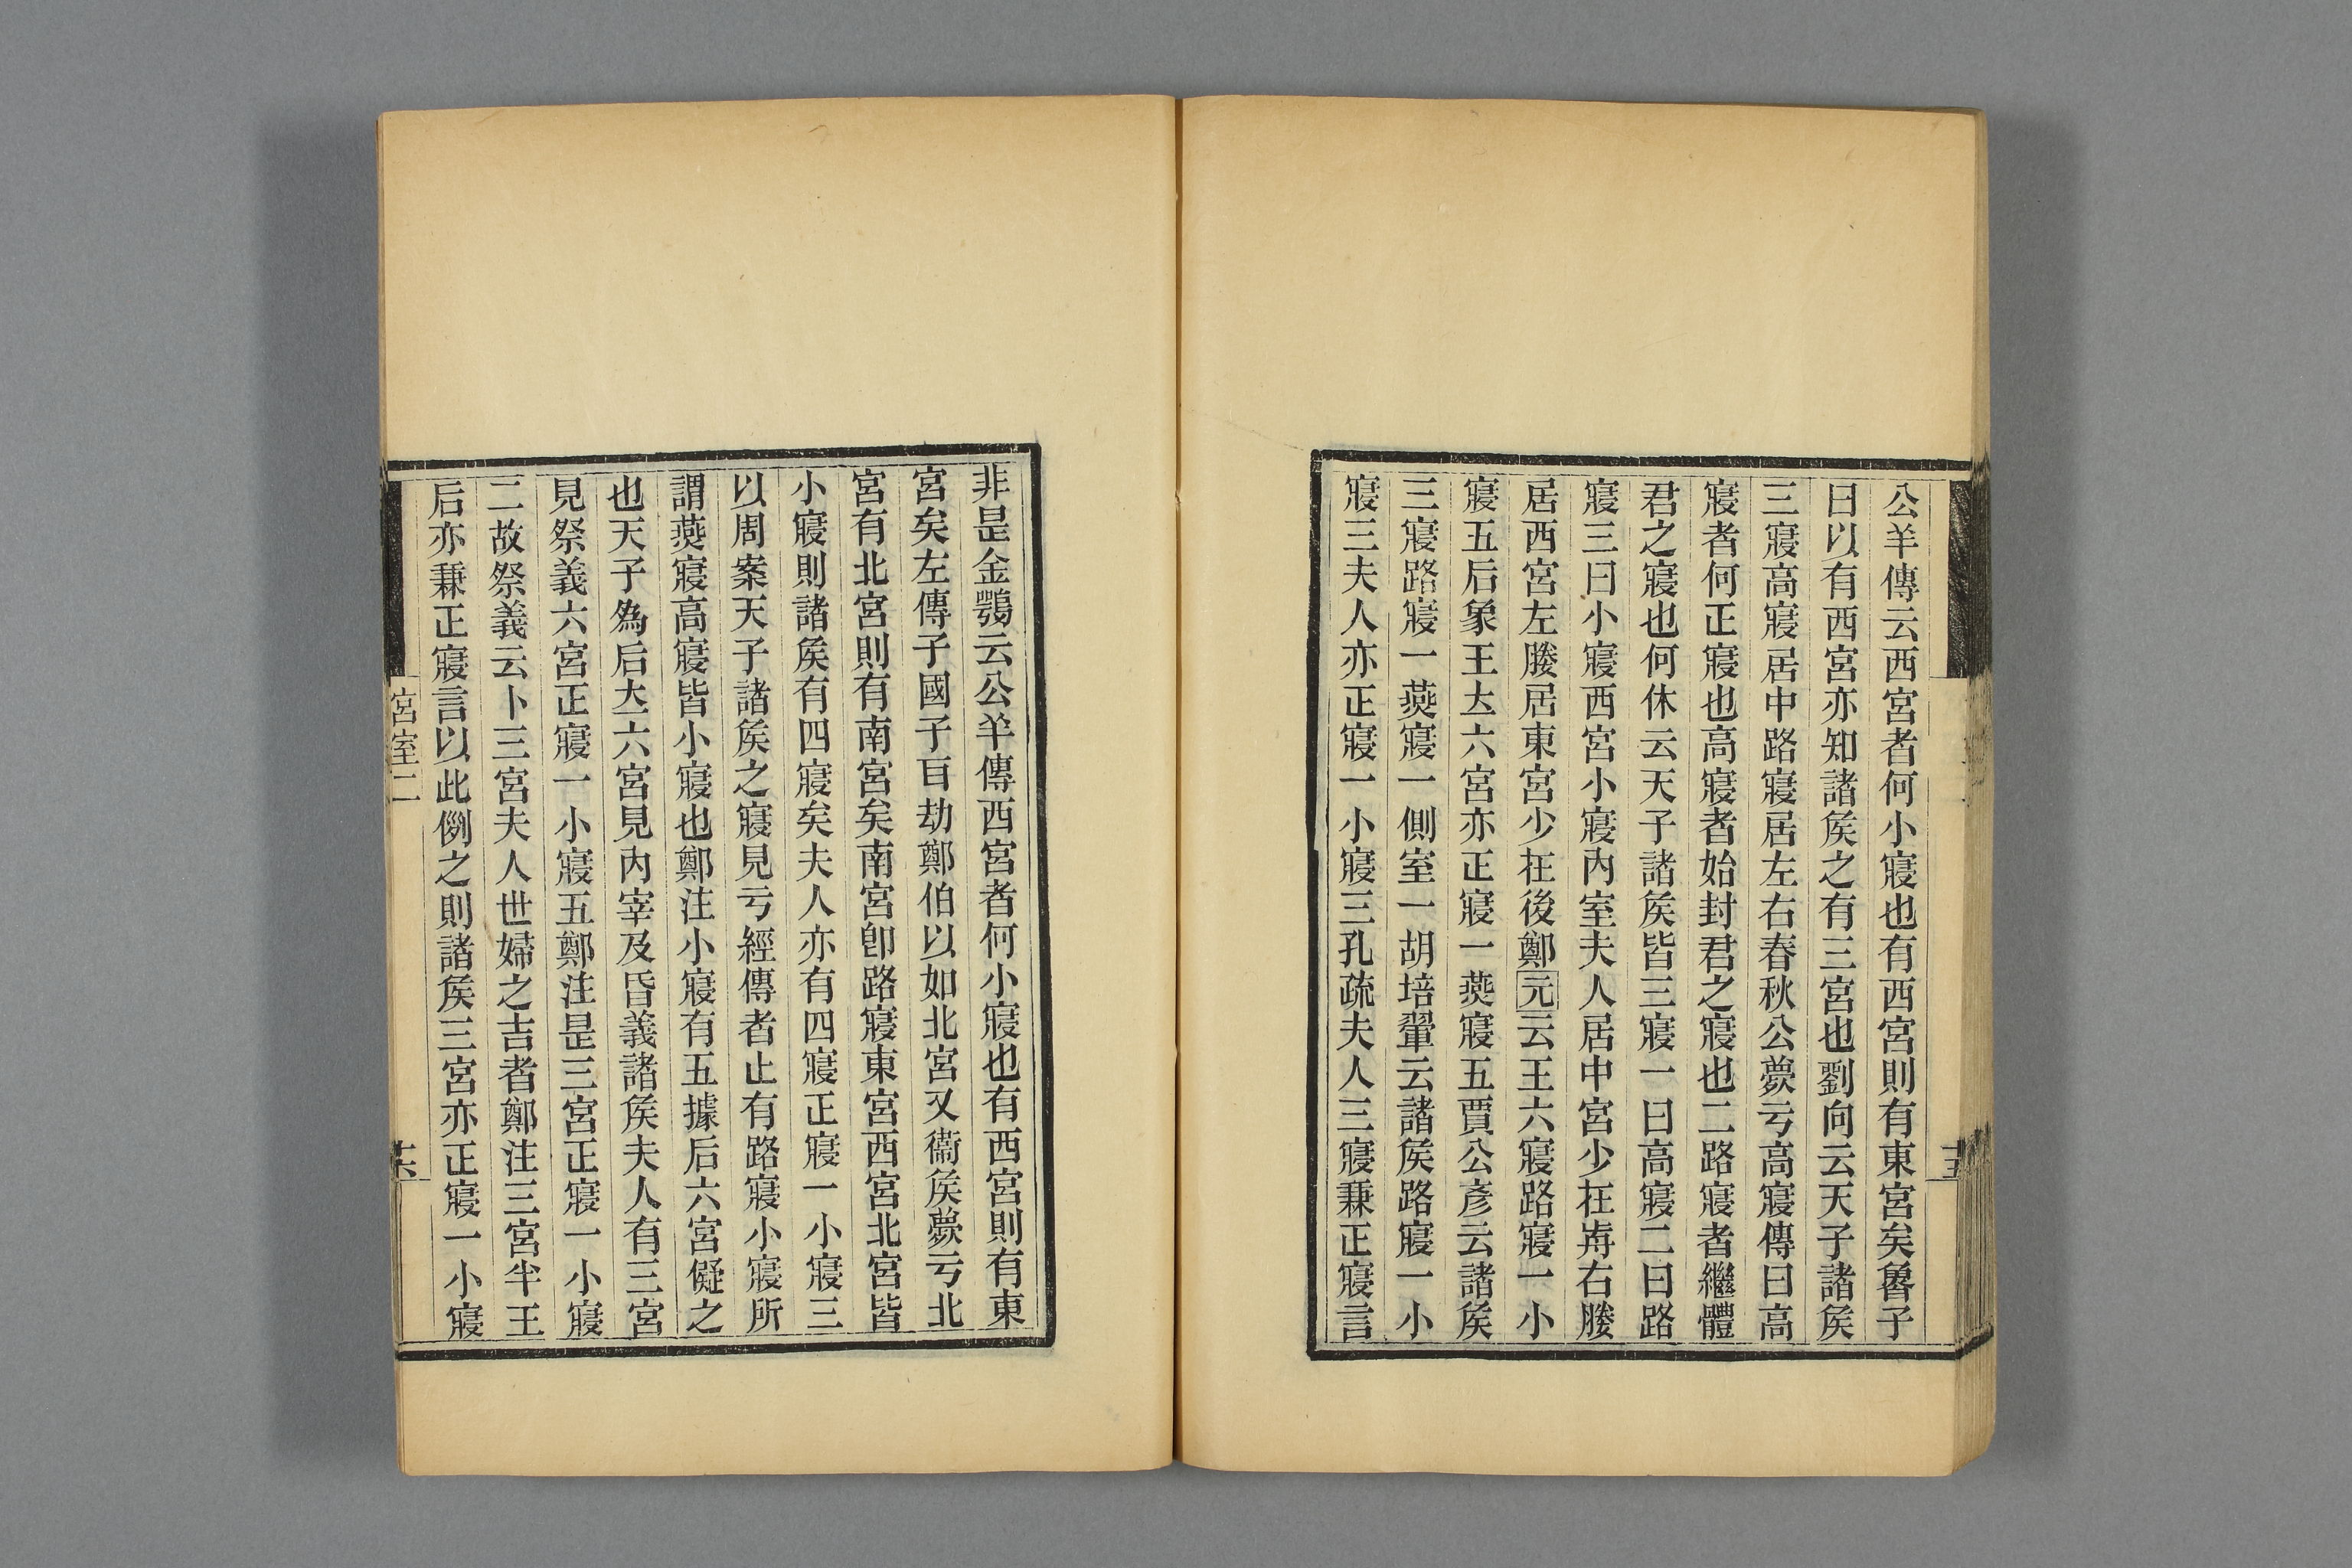 公羊傳云西宮者何小寢也有西宮則有東宮矣魯子
曰以有西宮亦知諸矦之有三宮也劉向云天子諸矦
三寢高寢居中路寢居左右春秋公薨亏高寢傳曰高
寢者何正寢也高寢者始封君之寢也二路寢者繼體
君之寢也何休云天子諸矦皆三寢一曰高寢二曰路
寢三曰小寢西宮小寢內室夫人居中宮少在歬右媵
居西宮左媵居東宮少在後鄭元云王六寢路寢一小
寢五后象王立六宮亦正寢一燕寢五賈公彥云諸矦
三寢路寢一燕寢一側室一胡培翬云諸矦路寢一小
寢三夫人亦正寢一小寢三孔疏夫人三寢兼正寢言
非是金鶚云公羊傳西宮者何小寢也有西宮則有東
宮矣左傳子國子耳劫鄭伯以如北宮又衞矦夢亏北
宮有北宮則有南宮矣南宮卽路寢東宮西宮北宮皆
小寢則諸矦有四寢矣夫人亦有四寢正寢一小寢三
以周案天子諸矦之寢見亏經傳者止有路寢小寢所
謂燕寢高寢皆小寢也鄭注小寢有五據后六宮儗之
也天子爲后立六宮見內宰及昏義諸矦夫人有三宮
見祭義六宮正寢一小寢五鄭注是三宮正寢一小寢
二故祭義云卜三宮夫人世婦之吉者鄭注三宮半王
后亦兼正寢言以此例之則諸矦三宮亦正寢一小寢
宮室二